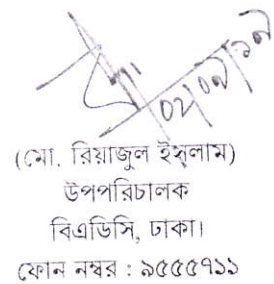 (মো. রিয়াজুল ইসলাম)
উপপরিচালক
বিএডিসি, ঢাকা।
ফোন নম্বর : ৯৫৫৫৭১১